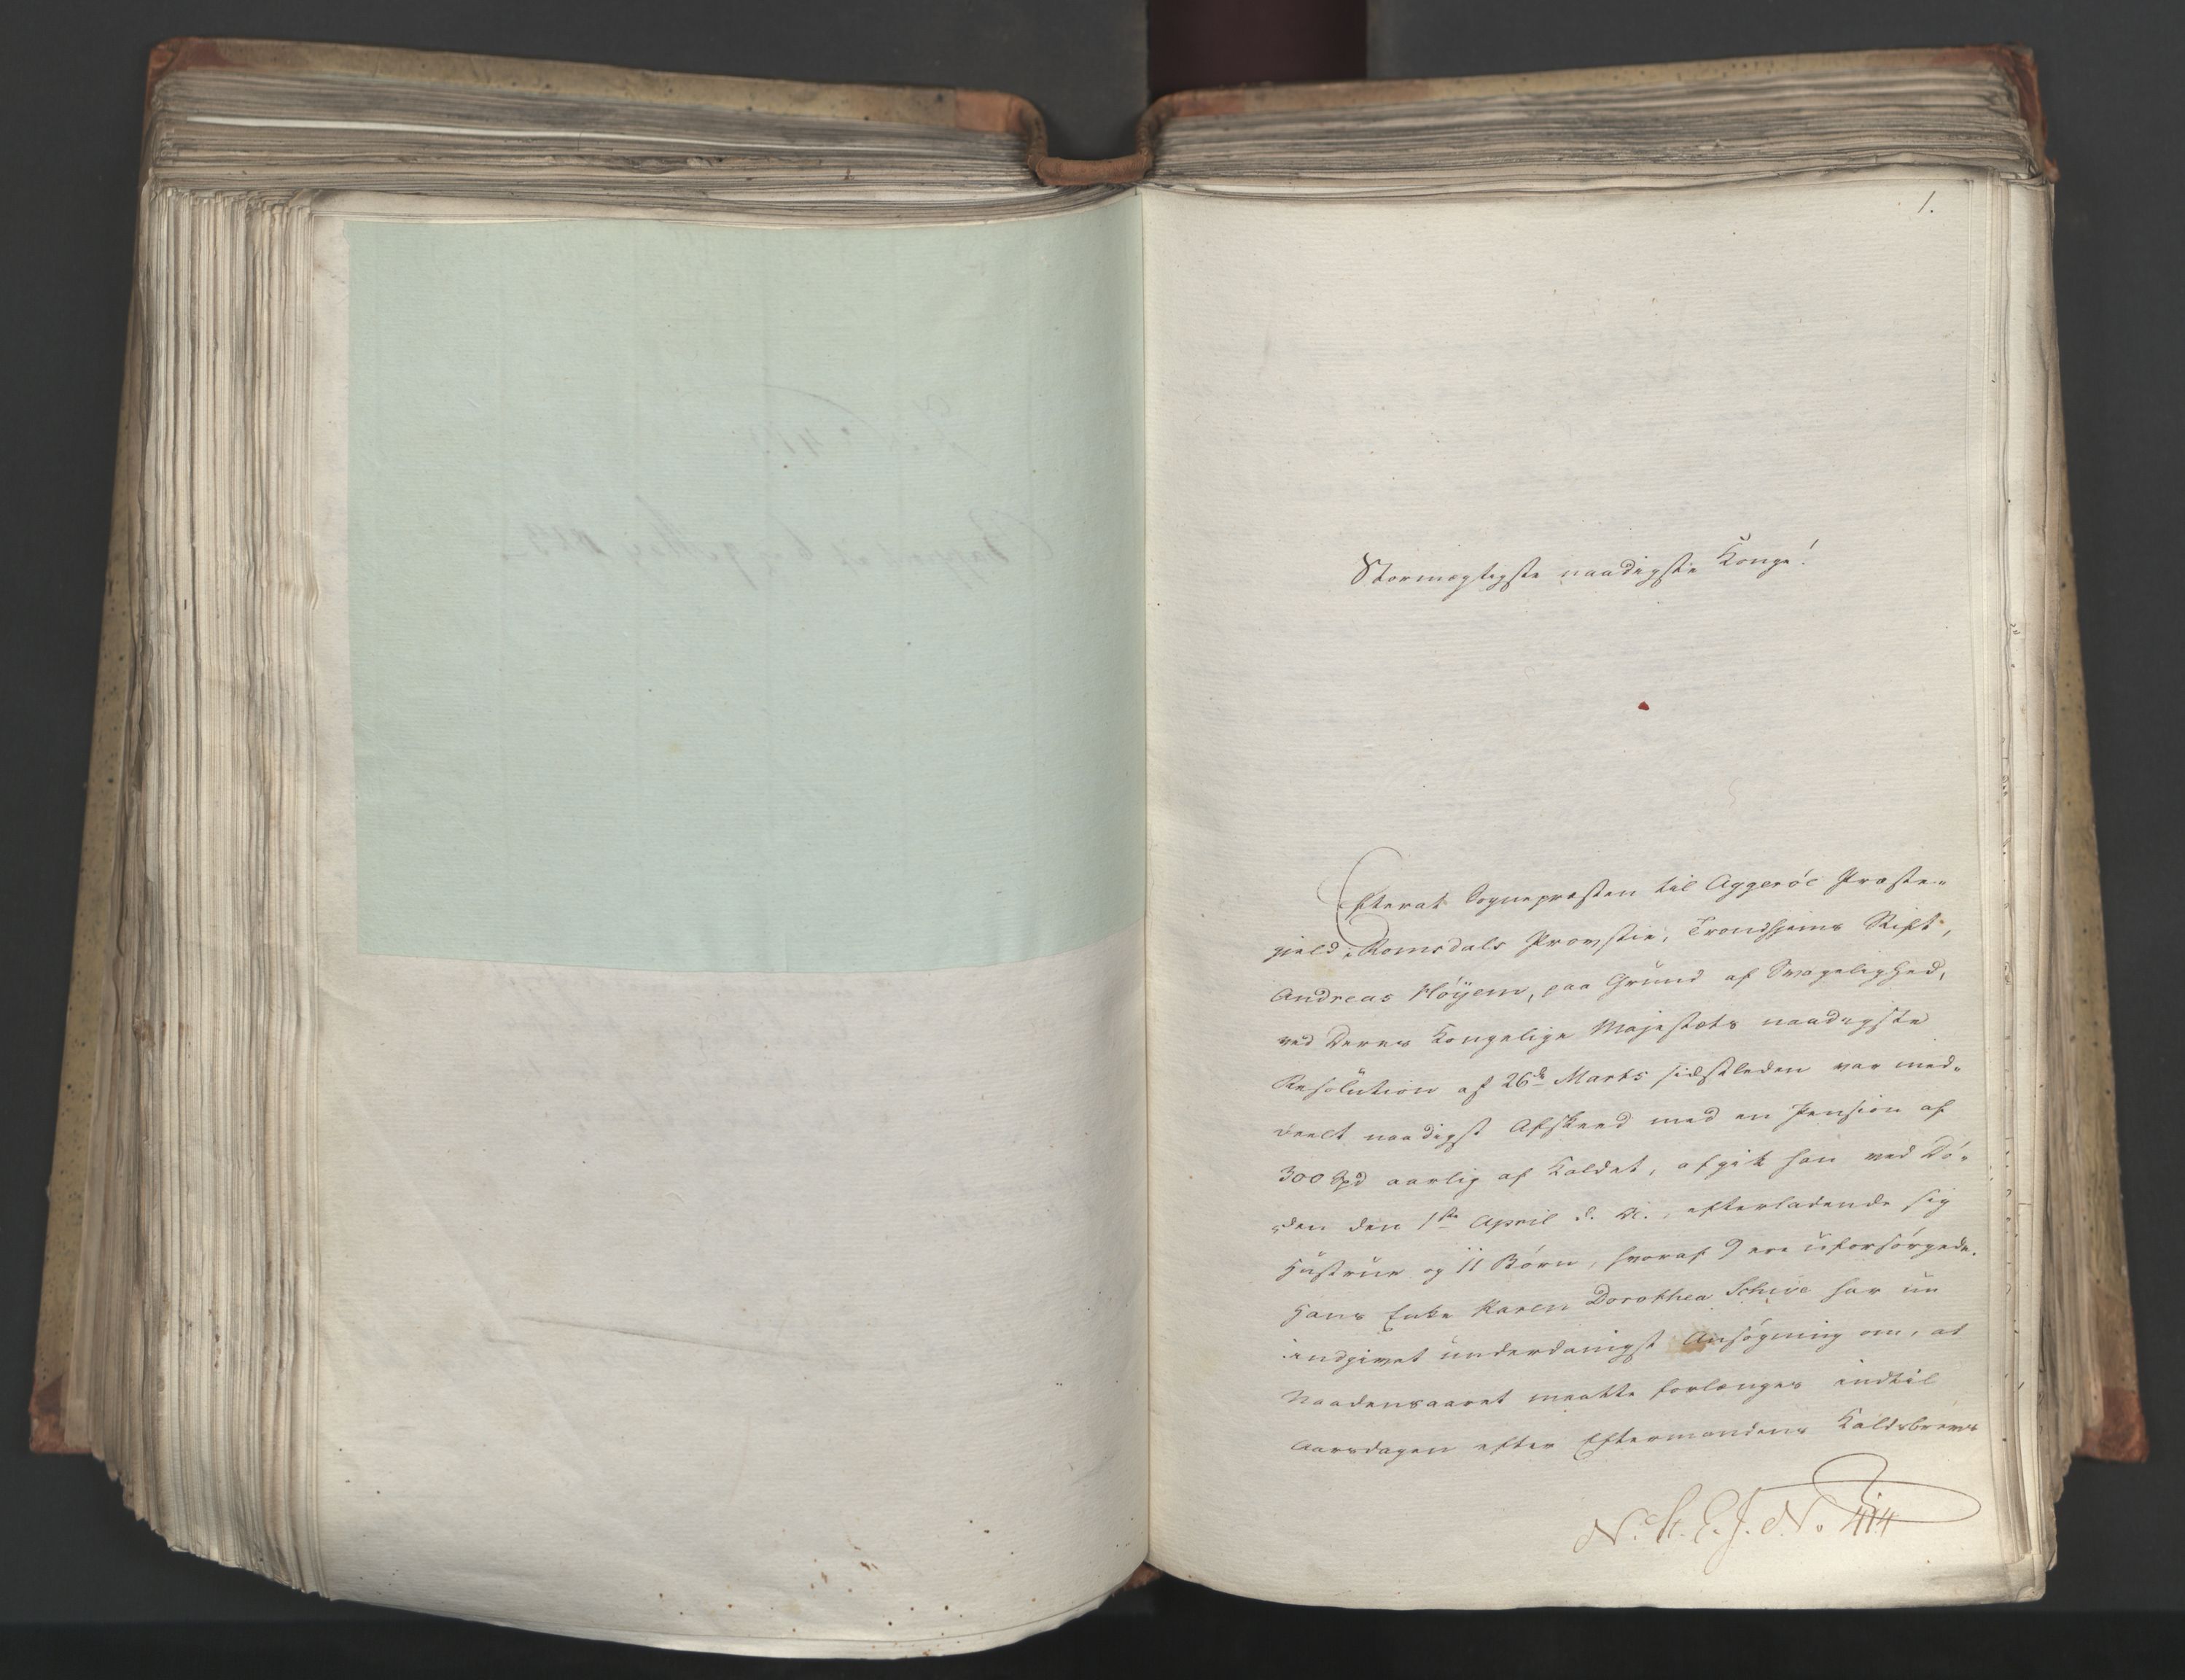 1.
Stormægtigste naadigste Konge!
Efterat Sognepræsten til Aggerøe Præste-
gield i Romsdals Provstie, Trondhjems Stift,
Andreas Høyem, paa Grund af Svagelighed,
ved Deres Kongelige Majestæts naadigste
Resolution af 26de Marts sidstleden var med-
deelt naadigst Afskeed med en Pension af
300 Spd aarlig af Kaldet, afgik han ved Dø-
den den 1ste April d. A., efterladende sig
Hustrue og 11 Børn, hvoraf 9 ere uforsørgede.
Hans Enke Karen Dorothea Schive har nu
indgivet underdanigst Ansøgning om, at
Naadensaaret maatte forlænges indtil
Aarsdagen efter Eftermandens Kaldsbrevs
N. St. E. J. No. 414